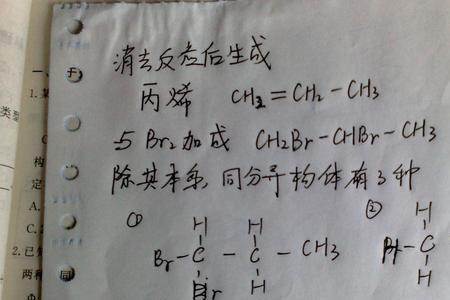 消去反应后生成
丙烯 CH2=CH2-CH3
与Br2加成 CH2Br-CHBr-CH3
除其本系,同分异构体有3种
① ②
H H H
Br-C-C-CH3 Br-C
Br H H
一、
1.
类型
构
定
A.
C.
2.已知
两种